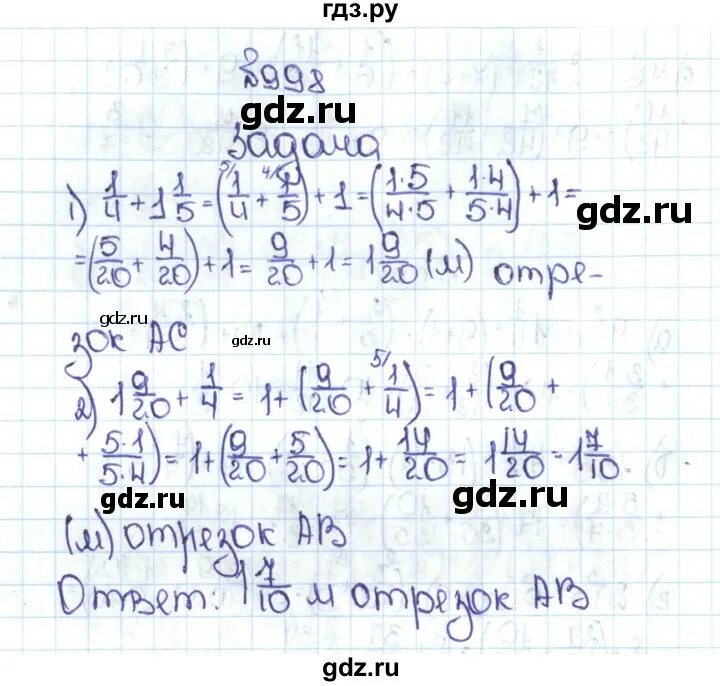 гдз.ру
№998
gdz.ru
Задача
1) 1/4 + 1 1/5 = (5/ 1/4 + 4/ 1/5) + 1 = (1·5/4·5 + 1·4/5·4) + 1 =
= (5/20 + 4/20) + 1 = 9/20 + 1 = 1 9/20 (м) отре-
gdz.ru
gdz.ru
gdz.ru
зок АС
2) 1 9/20 + 1/4 = 1 + (9/20 + 5/ 1/4) = 1 + (9/20 +
+ 5·1/5·4) = 1 + (9/20 + 5/20) = 1 + 14/20 = 1 14/20 = 1 7/10
gdz.ru
gdz.ru
(м) отрезок АВ
gdz.ru
Ответ: 1 7/10 м отрезок АВ
gdz.ru